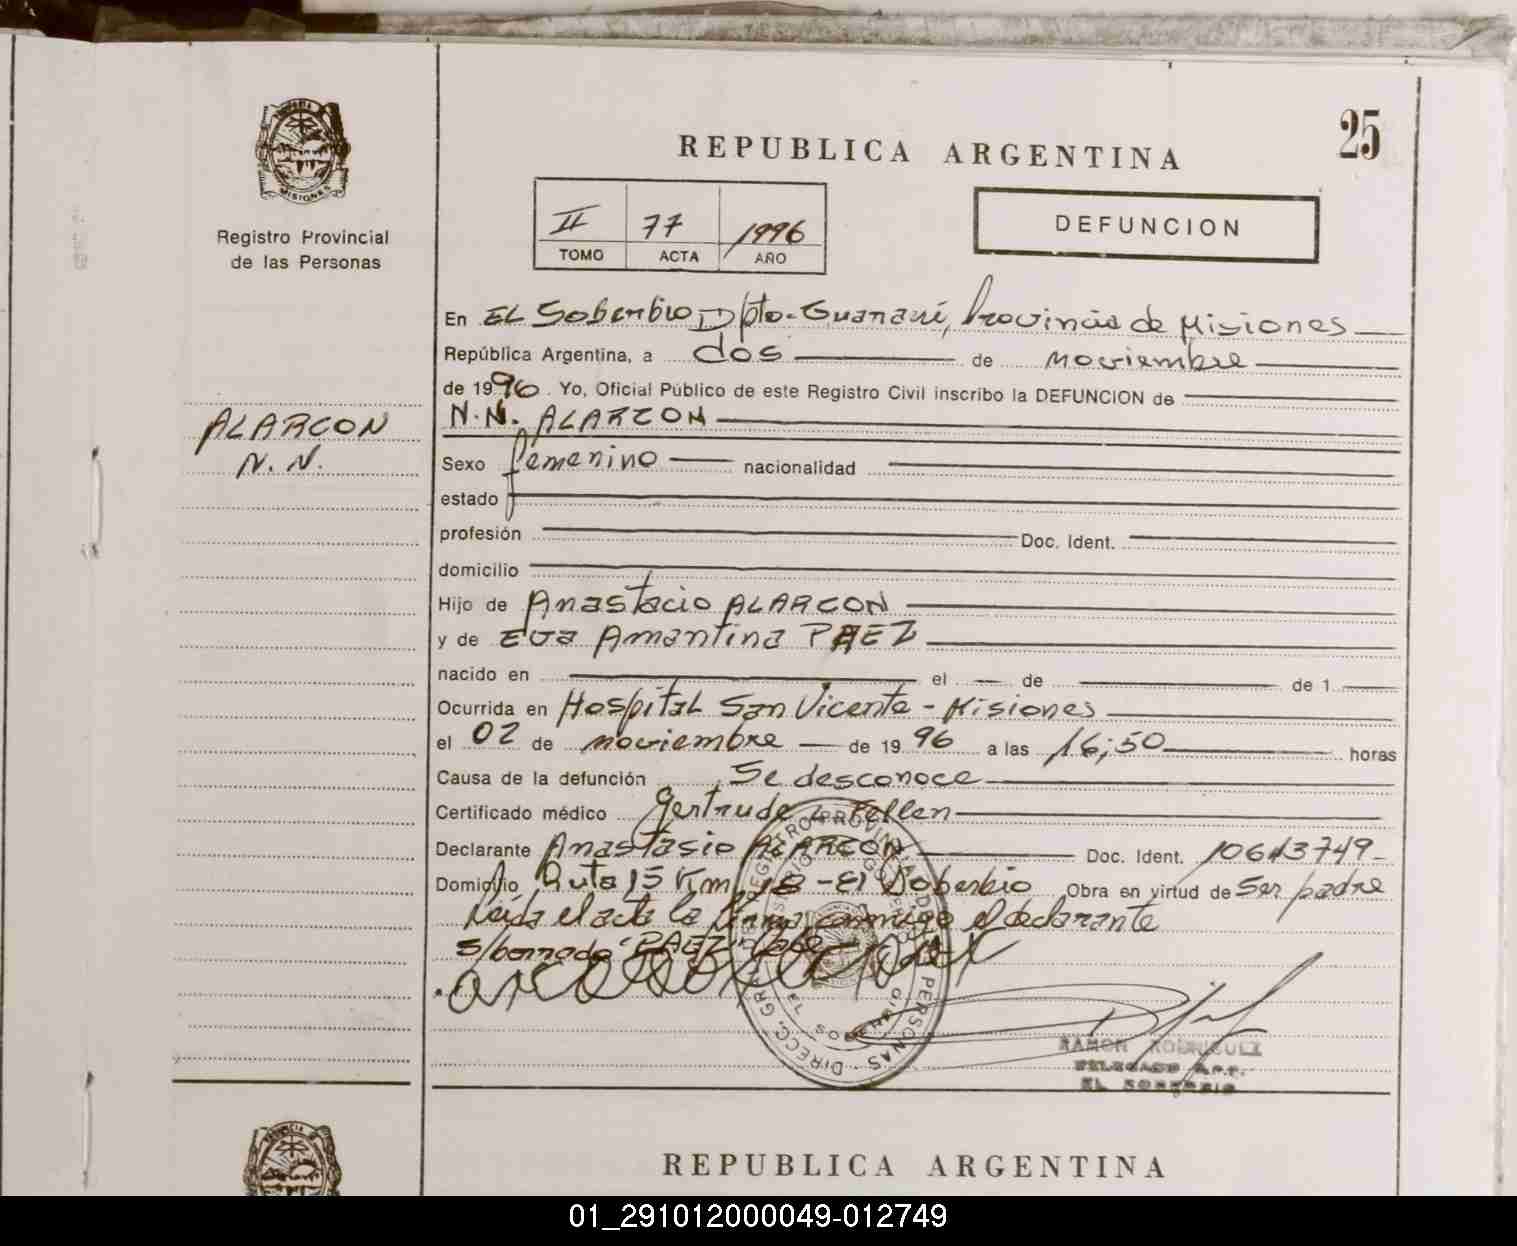 25
REPUBLICA ARGENTINA
PROVINCIA DE
MISIONES
Registro Provincial
de las Personas
II 77 1996
TOMO ACTA AÑO
DEFUNCION
En EL Soberbio Dpto-Guaraní, Provincia de Misiones
República Argentina, a dos de noviembre
de 1996. Yo, Oficial Público de este Registro Civil inscribo la DEFUNCION de
N.N. ALARCON
ALARCON
N. N.
Sexo femenino nacionalidad
estado
profesión Doc. Ident.
domicilio
Hijo de Anastacio ALARCON
y de Eva Amantina PAEZ
nacido en el de de 1
Ocurrida en Hospital San Vicente - Misiones
el 02 de noviembre de 1996 a las 16;50 horas
Causa de la defunción Se desconoce
Certificado médico Gertrude Fellen
Declarante Anastasio ALARCON Doc. Ident. 10613749-
Domicilio Ruta 15 Km 18 - El Soberbio Obra en virtud de Ser padre
Leída el acta la firma conmigo el declarante
S/borrado "PAEZ" Vale
RAMON RODRIGUEZ
DELEGADO R.P.P.
EL SOBERBIO
REPUBLICA ARGENTINA
01_291012000049-012749